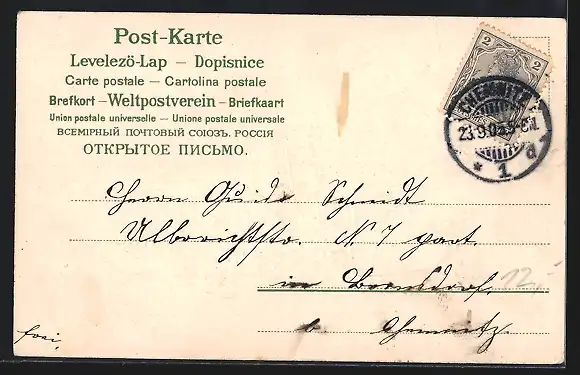 Post-Karte
Levelező-Lap – Dopisnice
Carte postale – Cartolina postale
Brefkort – Weltpostverein – Briefkaart
Union postale universelle – Unione postale universale
ВСЕМІРНЫЙ ПОЧТОВЫЙ СОЮЗЪ. РОССІЯ
ОТКРЫТОЕ ПИСЬМО.
2 2
CHEMNITZ
23.9.05
* 1 d
Herrn Guido Schmidt
Ulbrichtstr. N. 7 part.
in Bernsdorf.
12,-
b Chemnitz.